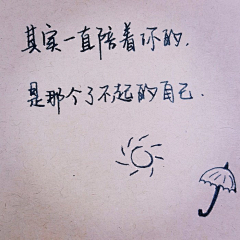 其实一直陪着你的,
是那个了不起的自己.